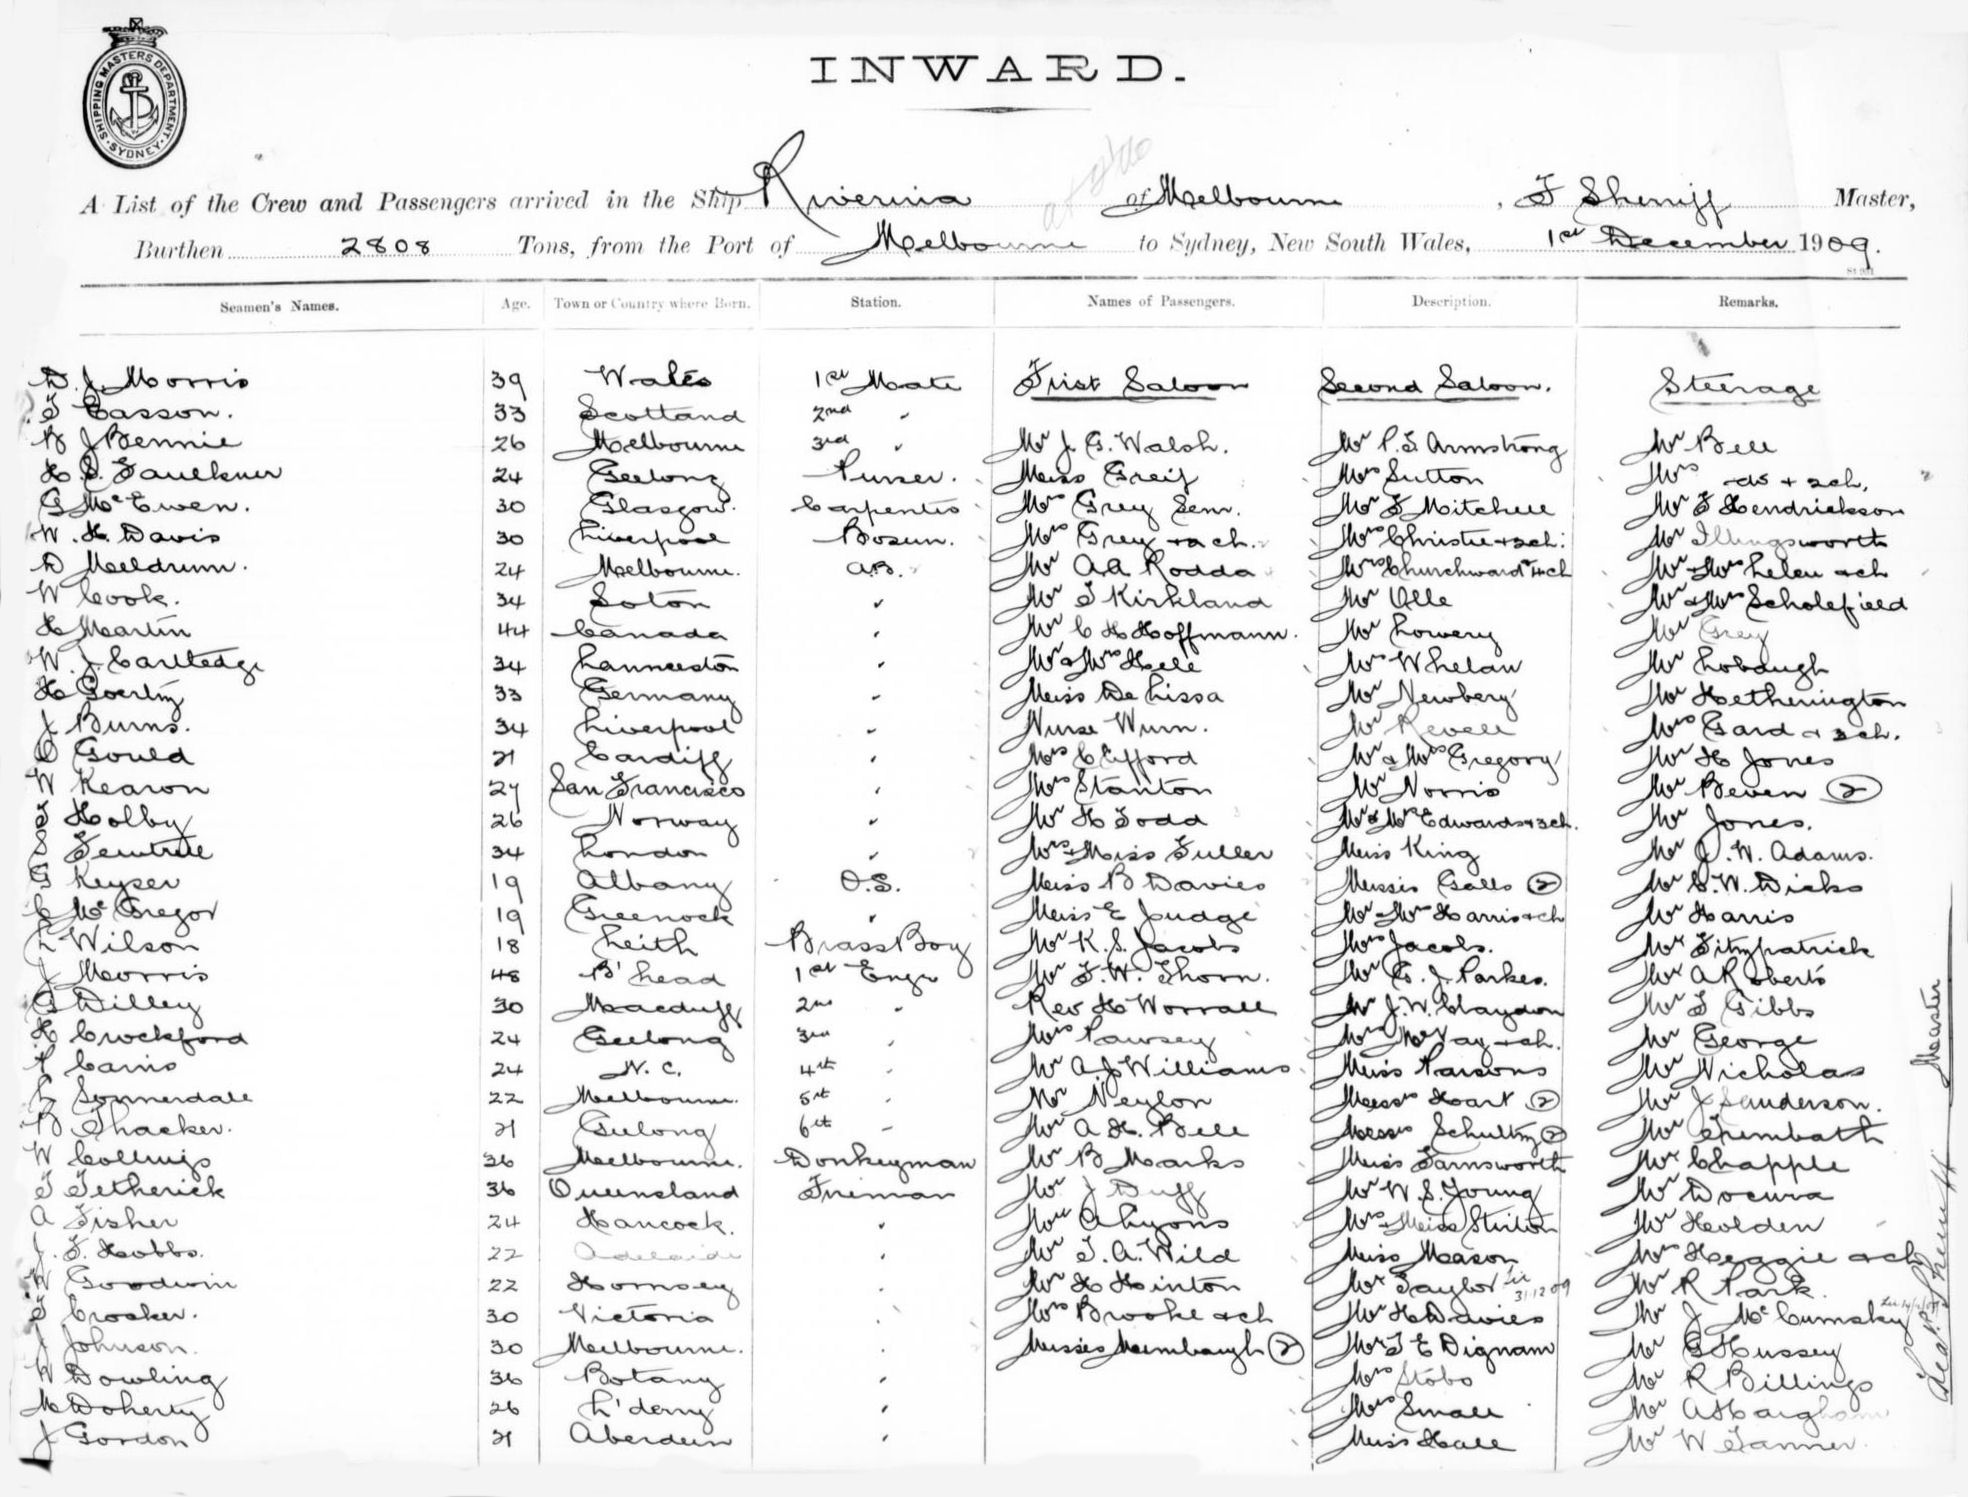 SHIPPING MASTERS DEPARTMENT
SYDNEY
INWARD.
A List of the Crew and Passengers arrived in the Ship Riverina of Melbourne, F Sherriff Master,
Burthen 2808 Tons, from the Port of Melbourne to Sydney, New South Wales, 1st December 1909.
Seamen's Names. Age. Town or Country where Born. Station. Names of Passengers. Description. Remarks.
D. J. Morris 39 Wales 1st Mate First Saloon Second Saloon. Steerage
T Casson. 33 Scotland 2nd "
B J Bennie 26 Melbourne 3rd " Mr J. G. Walsh. Mr P. T. Armstrong Mr Bell
H. S. Faulkner 24 Geelong Purser. Miss Greig Mrs Sutton Mrs do + 2ch.
G McEwen. 30 Glasgow. Carpenter Mrs Grey Senr. Mr F Mitchell Mr F Hendrickson
W. H. Davis 30 Liverpool Bosun. Mrs Grey + 2 ch. Mrs Christie + 2ch. Mr Illingsworth
D Meldrum. 24 Melbourne. A.B. Mr A.A Rodda Mrs Churchward + 4ch Mr + Mrs Leleu + ch
W Cook. 34 Soton " Mr T Kirkland Mr Olle Mr & Mrs Scholefield
H Martin 44 Canada " Mr C H Hoffmann. Mr Lowery Mr Grey
W. J. Cartledge 34 Launceston " Mr & Mrs Hele Mrs Whelan Mr Lobaugh
H Goerling 33 Germany " Miss De Lissa Mr Newbery Mr Hetherington
J Burns. 34 Liverpool " Nurse Wurn. Mr Revell Mrs Gard + 3ch.
C Gould 21 Cardiff " Mrs Clifford Mr & Mrs Gregory Mr H Jones
W Kearon 27 San Francisco " Mrs Stanton Mr Norris Mr Beven (2)
T Holby 26 Norway " Mr H Todd Mr & Mrs Edwards + 3ch. Mr Jones.
S Fewtrell 34 London " Mrs + Miss Fuller Miss King Mr J. W. Adams.
G Keyser 19 Albany O.S. Miss B Davies Misses Galls (2) Mr C. W. Dicks
C McGregor 19 Greenock " Miss E Judge Mr + Mrs Harris + ch Mr Harris
L Wilson 18 Leith Brass Boy Mr K. S. Jacobs Mrs Jacobs. Mr Fitzpatrick
J Morris 48 B'head 1st Engr Mr F. W. Thorn. Mr G. J. Parkes. Mr A Roberts
G Dilley 30 Macduff 2nd " Rev H Worrall Mr J. W. Claydon Mr T Gibbs
H Crockford 24 Geelong 3rd " Mrs Pawsey Mrs McVay + ch. Mr George
P Cairns 24 N. C. 4th " Mr A J Williams Miss Parsons Mr Nicholas
L Sonnerdale 22 Melbourne. 5th " Mr Neylon Messrs Hart (2) Mr J Sanderson.
B Thacker. 21 Geelong 6th " Mr A H. Bell Messrs Schultz (2) Mr Trembath
W Collings 36 Melbourne. Donkeyman Mr B Marks Miss Farnsworth Mr Chapple
T Tetherick 36 Queensland Fireman Mr J Duff Mr W. S. Young Mr Docura
A Fisher 24 Hancock. " Mr A Lyons Mrs + Miss Stirton Mr Holden
J. F. Hobbs. 22 Adelaide " Mr T. A. Wild Miss Mason Mrs Heggie + ch
W Goodwin 22 Hornsey " Mr H Hinton Mr Taylor 31.12.09 Mr R Park.
T Crocker. 30 Victoria " Mrs Brooke + ch Mr H Davies Mr J McCumsky
J Johnson. 30 Melbourne. " Misses Membaugh (2) Mr T E Dignam Mr G Hussey
W Dowling 36 Botany " Mrs Stobo Mr R Billings
M Doherty 26 L'derry " Mrs Small Mr A Haigham
J Gordon 21 Aberdeen " Miss Hall Mr W Tanner.
Master